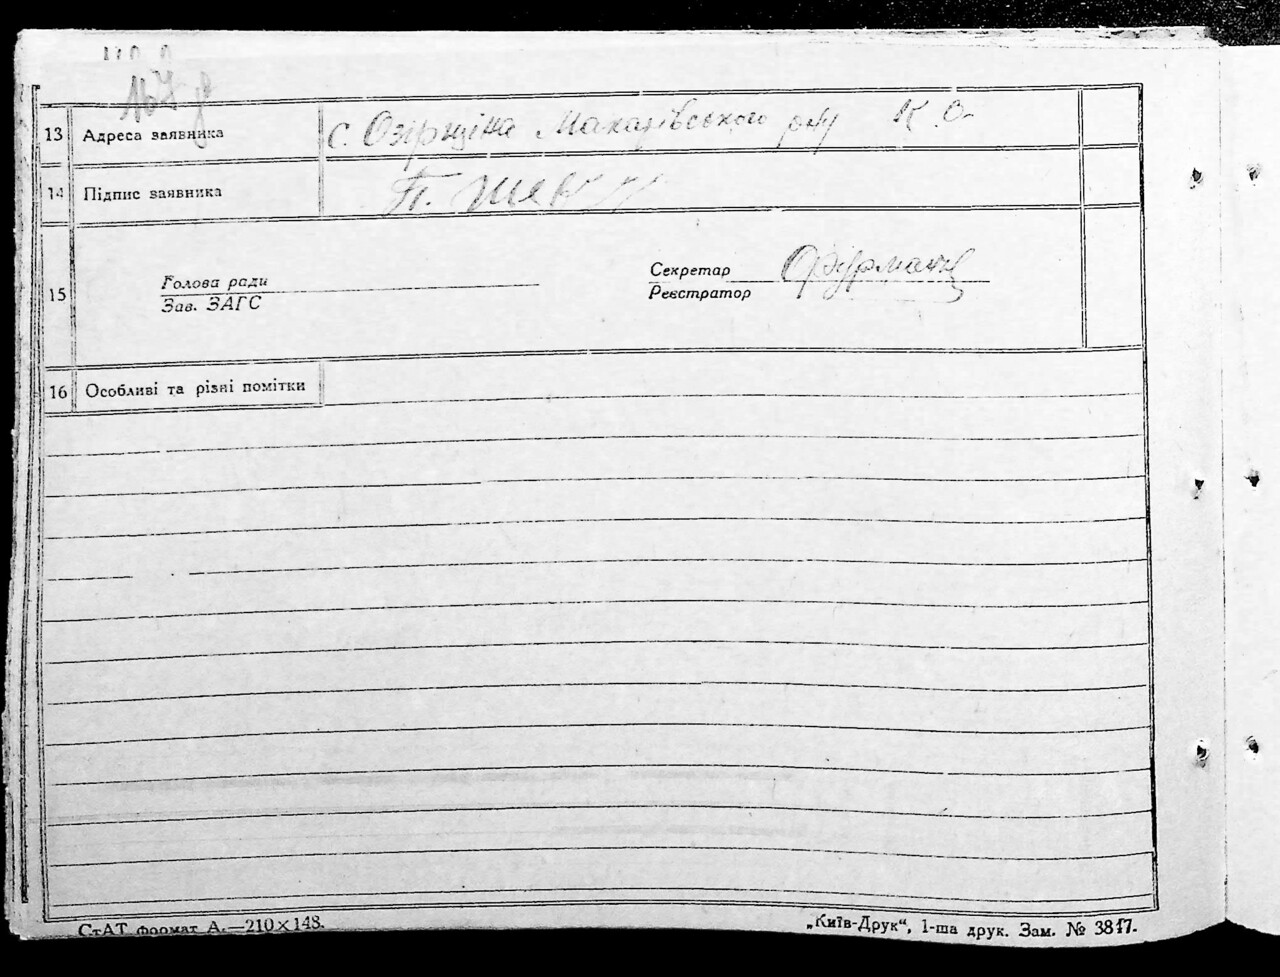 167
13 Адреса заявника с. Озірщіна Макарівського р-ну К. О.
14 Підпис заявника П.
15
Голова ради
Зав. ЗАГС
Секретар Фурман
Реєстратор
16 Особливі та різні помітки
СтАТ формат А.—210×148.
„Київ-Друк“, 1-ша друк. Зам. № 3817.